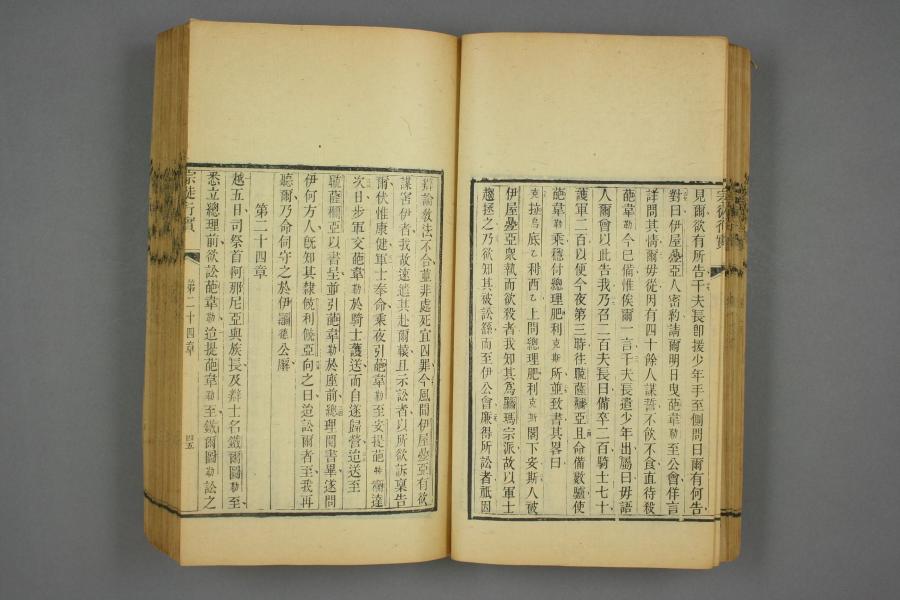 見爾欲有所告千夫長卽援少年手至側問曰爾有何告
對曰伊屋叅亞人密約請爾明日曳葩韋勒至公會佯言
詳問其情爾毋從因有四十餘人謀誓不飲不食直待殺
葩韋勒今已備惟俟爾一言千夫長遣少年出囑曰毋語
人爾曾以此告我乃召二百夫長曰備卒二百騎士七十
護軍二百以便今夜第三時往 薩 亞且命備數驢使
葩韋勒乘穏付總理肥利克斯所並致書其畧曰
克拉烏底乙利西乙上問總理肥利克斯閣下安斯人被
伊屋叅亞衆執而欲殺者我知其爲 瑪宗派故以軍士
趨拯之乃欲知其被訟繇而至伊公會廉得所訟者祇因
辯論敎法不合並非處死宜囚罪今風聞伊屋叅亞有欲
謀害伊者我故速遣其赴爾轅且示訟者以所欲訴稟告
爾伏惟康健軍士奉命乘夜引葩韋勒至安提葩特 達
次日步軍交葩韋勒於騎士護送而自遂歸營迨送至
 薩 亞以書呈並引葩韋勒於座前總理閱書畢遂問
伊何方人旣知其隸 利 亞向之曰迨訟爾者至我再
聽爾乃命伺守之於伊 德公廨
第二十四章
越五日司祭首阿那尼亞與族長及辯士名鐵爾圖勒至
悉立總理前欲訟葩韋勒迨提葩韋勒至鐵爾圖勒訟之
宗徒行實
第二十四章
四五
宗徒行實